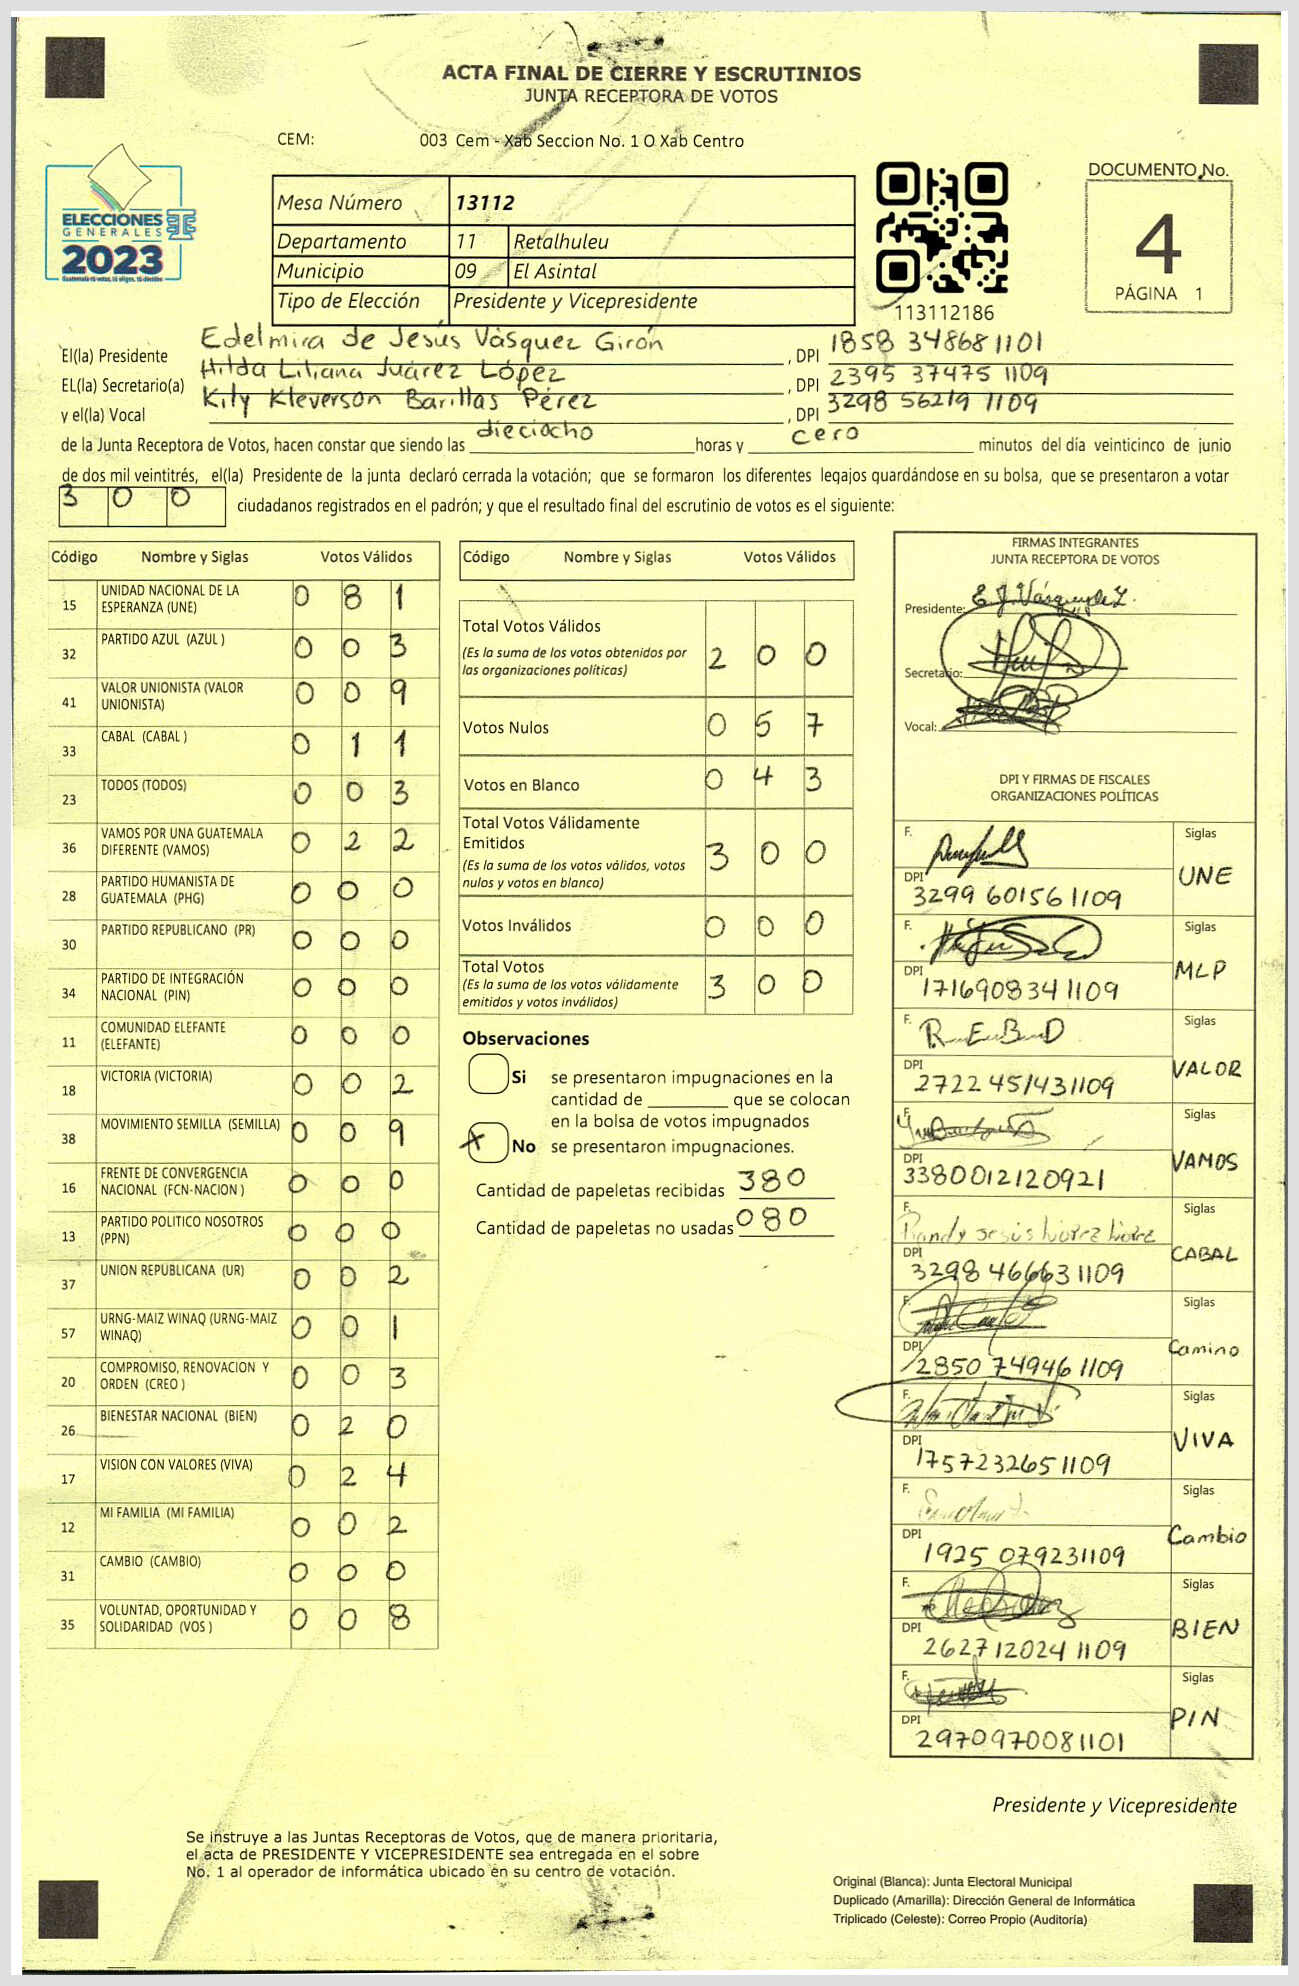 ACTA FINAL DE CIERRE Y ESCRUTINIOS
JUNTA RECEPTORA DE VOTOS
CEM: 003 Cem - Xab Seccion No. 1 O Xab Centro
ELECCIONES
GENERALES
2023
Mesa Número 13112
Departamento 11 Retalhuleu
Municipio 09 El Asintal
Tipo de Elección Presidente y Vicepresidente
113112186
DOCUMENTO No.
4
PÁGINA 1
El(la) Presidente Edelmira de Jesús Vásquez Girón, DPI 1858 34868 1101
EL(la) Secretario(a) Hilda Liliana Juárez López, DPI 2395 37475 1109
y el(la) Vocal Kily Kleverson Barillas Pérez, DPI 3298 56219 1109
de la Junta Receptora de Votos, hacen constar que siendo las dieciocho horas y cero minutos del día veinticinco de junio
de dos mil veintitrés, el(la) Presidente de la junta declaró cerrada la votación; que se formaron los diferentes legajos guardándose en su bolsa, que se presentaron a votar
300 ciudadanos registrados en el padrón; y que el resultado final del escrutinio de votos es el siguiente:
Código Nombre y Siglas Votos Válidos
15 UNIDAD NACIONAL DE LA ESPERANZA (UNE) 0 8 1
32 PARTIDO AZUL (AZUL ) 0 0 3
41 VALOR UNIONISTA (VALOR UNIONISTA) 0 0 9
33 CABAL (CABAL ) 0 1 1
23 TODOS (TODOS) 0 0 3
36 VAMOS POR UNA GUATEMALA DIFERENTE (VAMOS) 0 2 2
28 PARTIDO HUMANISTA DE GUATEMALA (PHG) 0 0 0
30 PARTIDO REPUBLICANO (PR) 0 0 0
34 PARTIDO DE INTEGRACIÓN NACIONAL (PIN) 0 0 0
11 COMUNIDAD ELEFANTE (ELEFANTE) 0 0 0
18 VICTORIA (VICTORIA) 0 0 2
38 MOVIMIENTO SEMILLA (SEMILLA) 0 0 9
16 FRENTE DE CONVERGENCIA NACIONAL (FCN-NACION ) 0 0 0
13 PARTIDO POLITICO NOSOTROS (PPN) 0 0 0
37 UNION REPUBLICANA (UR) 0 0 2
57 URNG-MAIZ WINAQ (URNG-MAIZ WINAQ) 0 0 1
20 COMPROMISO, RENOVACION Y ORDEN (CREO ) 0 0 3
26 BIENESTAR NACIONAL (BIEN) 0 2 0
17 VISION CON VALORES (VIVA) 0 2 4
12 MI FAMILIA (MI FAMILIA) 0 0 2
31 CAMBIO (CAMBIO) 0 0 0
35 VOLUNTAD, OPORTUNIDAD Y SOLIDARIDAD (VOS ) 0 0 8
Código Nombre y Siglas Votos Válidos
Total Votos Válidos 2 0 0
(Es la suma de los votos obtenidos por
las organizaciones políticas)
Votos Nulos 0 5 7
Votos en Blanco 0 4 3
Total Votos Válidamente
Emitidos 3 0 0
(Es la suma de los votos válidos, votos
nulos y votos en blanco)
Votos Inválidos 0 0 0
Total Votos 3 0 0
(Es la suma de los votos válidamente
emitidos y votos inválidos)
Observaciones
Si se presentaron impugnaciones en la
cantidad de ________ que se colocan
en la bolsa de votos impugnados
X No se presentaron impugnaciones.
Cantidad de papeletas recibidas 380
Cantidad de papeletas no usadas 080
FIRMAS INTEGRANTES
JUNTA RECEPTORA DE VOTOS
Presidente:
Secretario:
Vocal:
DPI Y FIRMAS DE FISCALES
ORGANIZACIONES POLÍTICAS
F. Siglas
DPI 3299 60156 1109 UNE
F. Siglas
DPI 1716908341109 MLP
F. Siglas
DPI 2722 451431109 VALOR
F. Siglas
DPI 3380012120921 VAMOS
F. Siglas
DPI 3298 466631109 CABAL
F. Siglas
DPI 2850 74946 1109 Camino
F. Siglas
DPI 1757232651109 VIVA
F. Siglas
DPI 1925 079231109 Cambio
F. Siglas
DPI 2627120241109 BIEN
F. Siglas
DPI 2970970081101 PIN
Presidente y Vicepresidente
Se instruye a las Juntas Receptoras de Votos, que de manera prioritaria,
el acta de PRESIDENTE Y VICEPRESIDENTE sea entregada en el sobre
No. 1 al operador de informática ubicado en su centro de votación.
Original (Blanca): Junta Electoral Municipal
Duplicado (Amarilla): Dirección General de Informática
Triplicado (Celeste): Correo Propio (Auditoría)